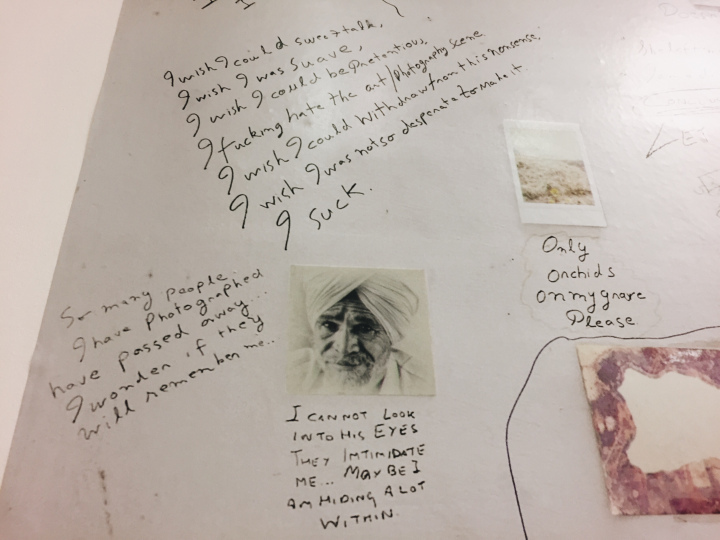 I wish I could sweettalk,
I wish I was suave,
I wish I could be pretentious,
I fucking hate the art/photography scene.
I wish I could withdraw from this nonsense,
I wish I was not so desperate to make it.
I SUCK.
Only
orchids
on my grave
Please
So many people
I have photographed
have passed away...
I wonder if they
will remember me..
I CANNOT LOOK
INTO HIS EYES
THEY INTIMIDATE
ME... MAYBE I
AM HIDING A LOT
WITHIN.